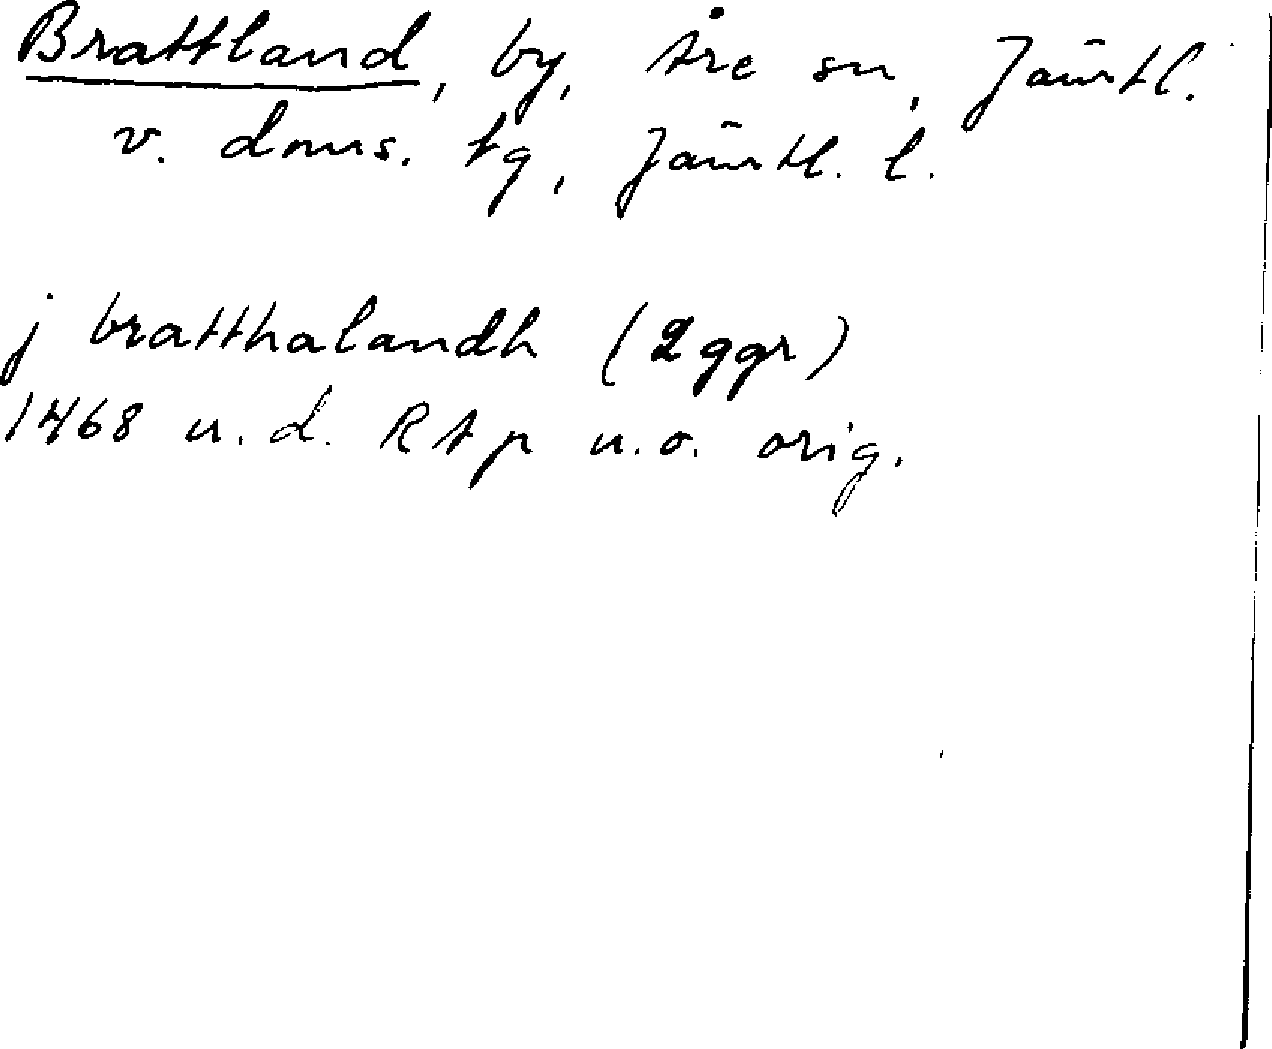 Brattland, by, Åre sn, Jämtl.
v. doms. tg, Jämtl. l.
j bratthalandh (2 ggr)
1468 u.d. RAp n.o. orig.